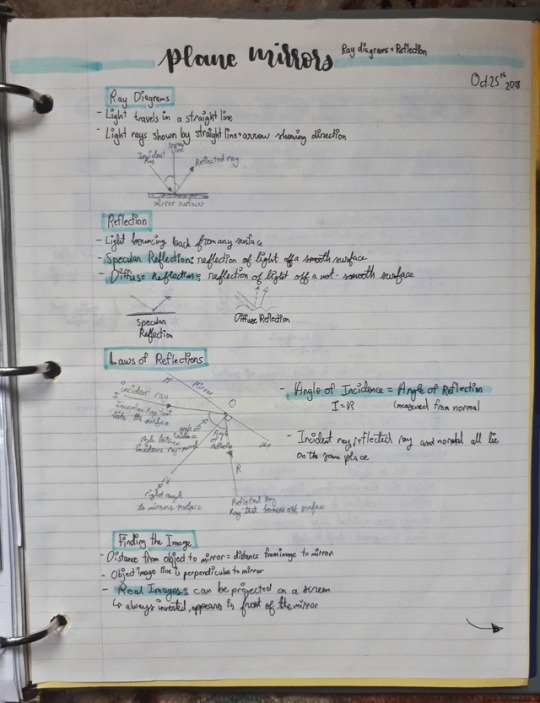 plane mirrors Ray diagrams + Reflection
Oct.25th 2018
Ray Diagrams
- Light travels in a straight line
- Light rays shown by straight line + arrow showing direction
Incident Ray
normal line
Reflected ray
mirror surface
Reflection
- Light bouncing back from any surface
- Specular Reflection: reflection of light off a smooth surface
- Diffuse Reflection: reflection of light off a not-smooth surface
Specular Reflection
Diffuse Reflection
Laws of Reflections
Mirror
incident ray
O
hits the surface
angle of
R
right angle
to mirrors surface
Reflected Ray
Ray that bounces off surface
- Angle of Incidence = Angle of Reflection
I=R (measured from normal)
- Incident ray, reflected ray and normal all lie
on the same place
Finding the Image
- Distance from object to mirror = distance from image to mirror
- Object image line is perpendicular to mirror
- Real Images: can be projected on a screen
↳ always inverted, appears in front of the mirror